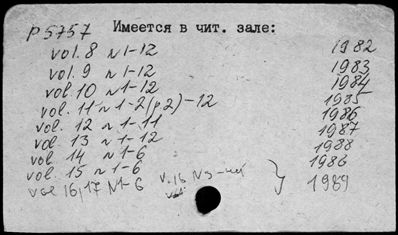 P5757 Имеется в чит. зале:
vol. 8 N 1-12 1982
vol. 9 N 1-12 1983
vol 10 N 1-12 1984
vol. 11 N 1-2(p2)-12 1985
vol. 12 N 1-11 1986
vol. 13 N 1-12 1987
vol. 14 N 1-6 1988
vol. 15 N 1-6 1986
vol 16,17 N1-6 v.16 N3-нет 1989